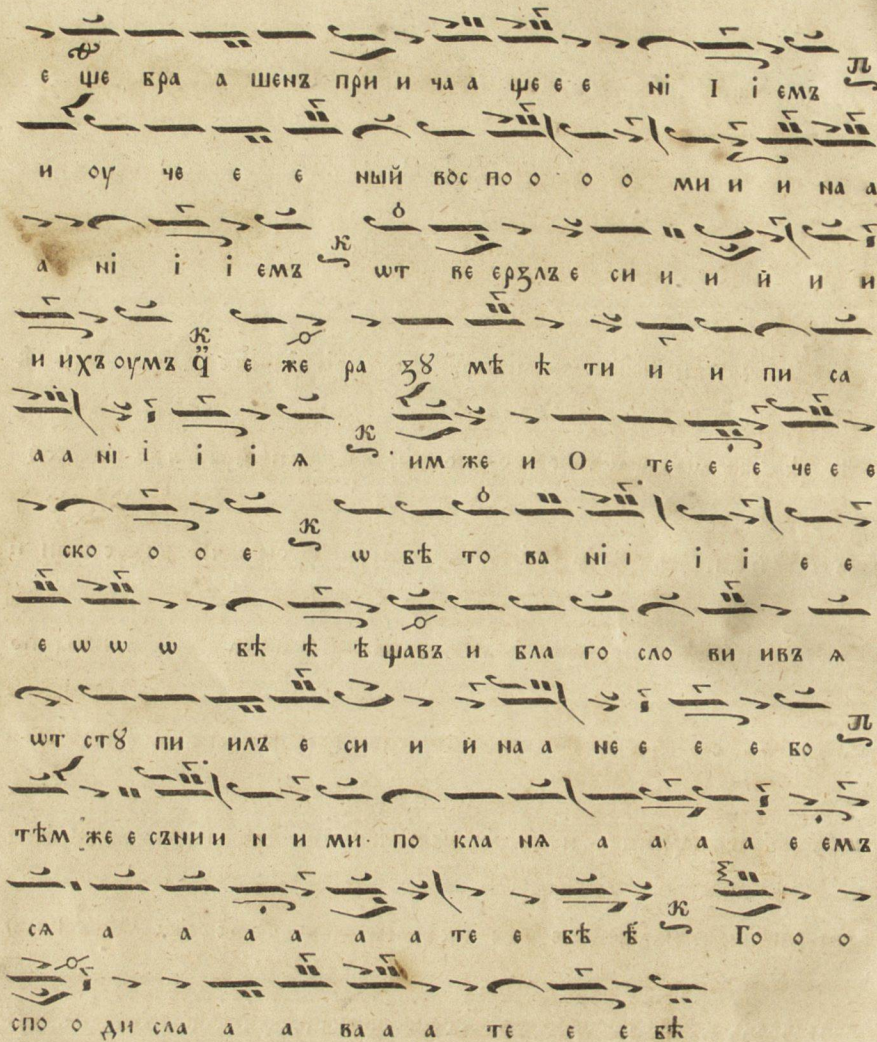 е ще бра а шенъ при и ча а ще е е ні І і емъ П
и оу че е е ный вос по о о о о ми и и на а
а ні і і емъ К ѿт ве ерзлъ е си и и й и и
и ихъ оумъ К е же ра зꙋ мѣ ѣ ти и и пи са
а а ні і і і ѧ К им же и О те е е че е е
ско о о е К ѡ бѣ то ва ні і і і е е
е ѡ ѡ ѡ бѣ ѣ ѣ щавъ и бла го сло ви ивъ ѧ
ѿт стꙋ пи илъ е си и й на а не е е е бо П
тѣм же е съни и н и ми по кла нѧ а а а а е емъ
сѧ а а а а а а те е бѣ ѣ К Го о о
спо о ди сла а а ва а а те е е бѣ